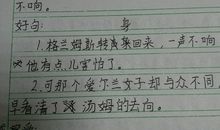 不响。
好句: 身
1.格兰姆斯转离来回来,一声不响
他有点儿害怕了。
2.可那个爱尔兰女子却与众不同,
早看清了汤姆的去向。